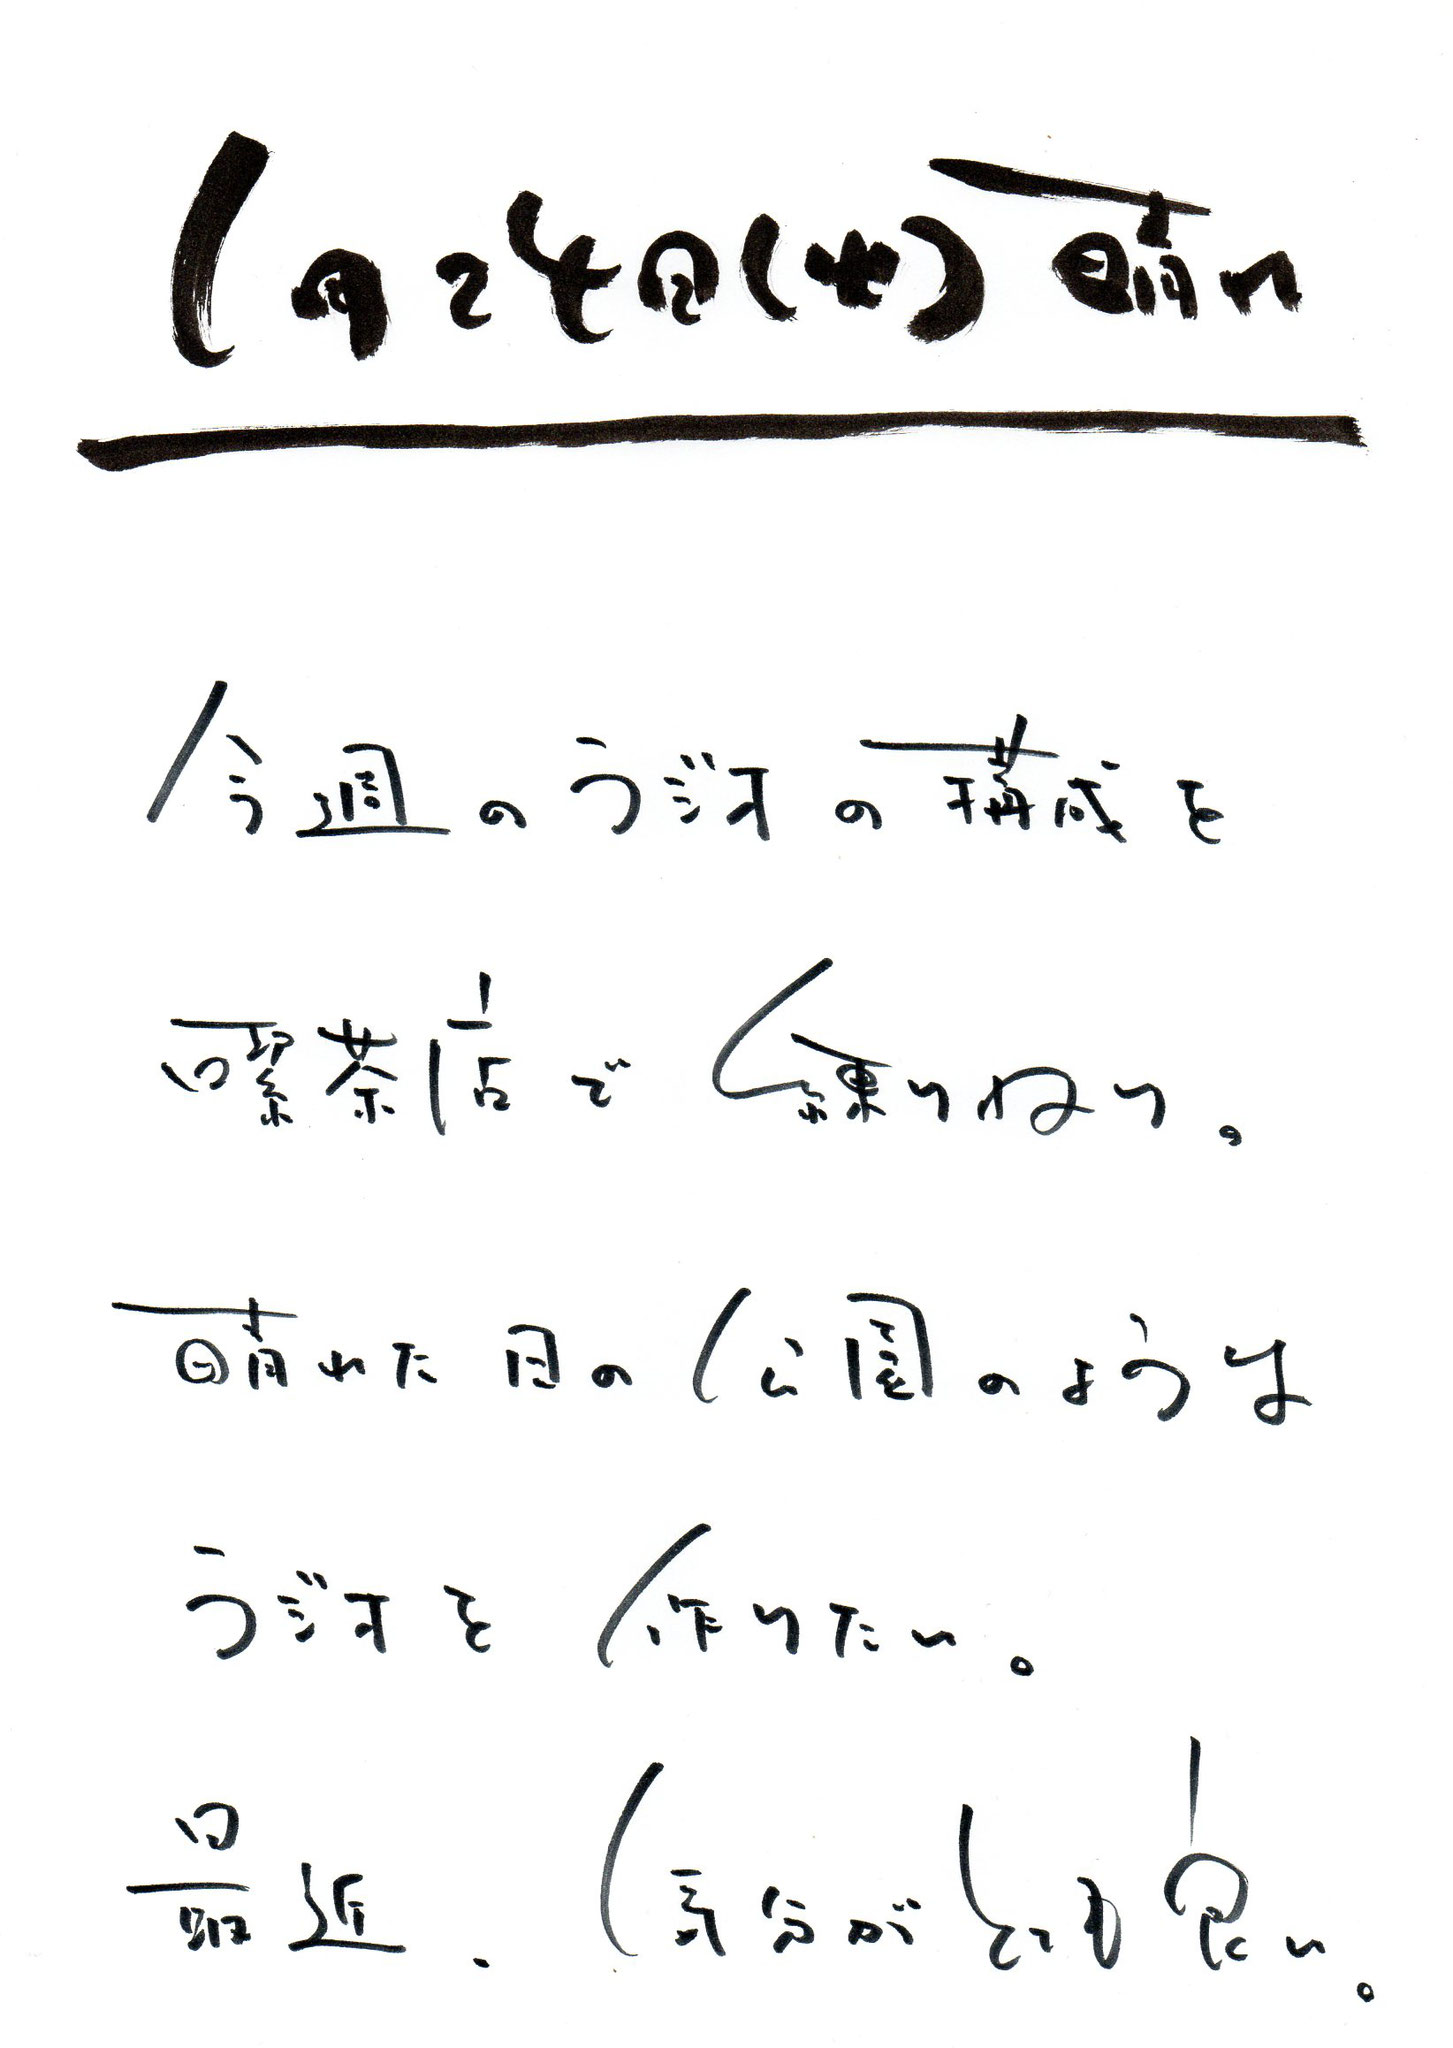 1月24日(水)晴れ
今週のラジオの構成を
喫茶店で練りねり。
晴れた日の公園のような
ラジオを作りたい。
最近、気分がとても良い。